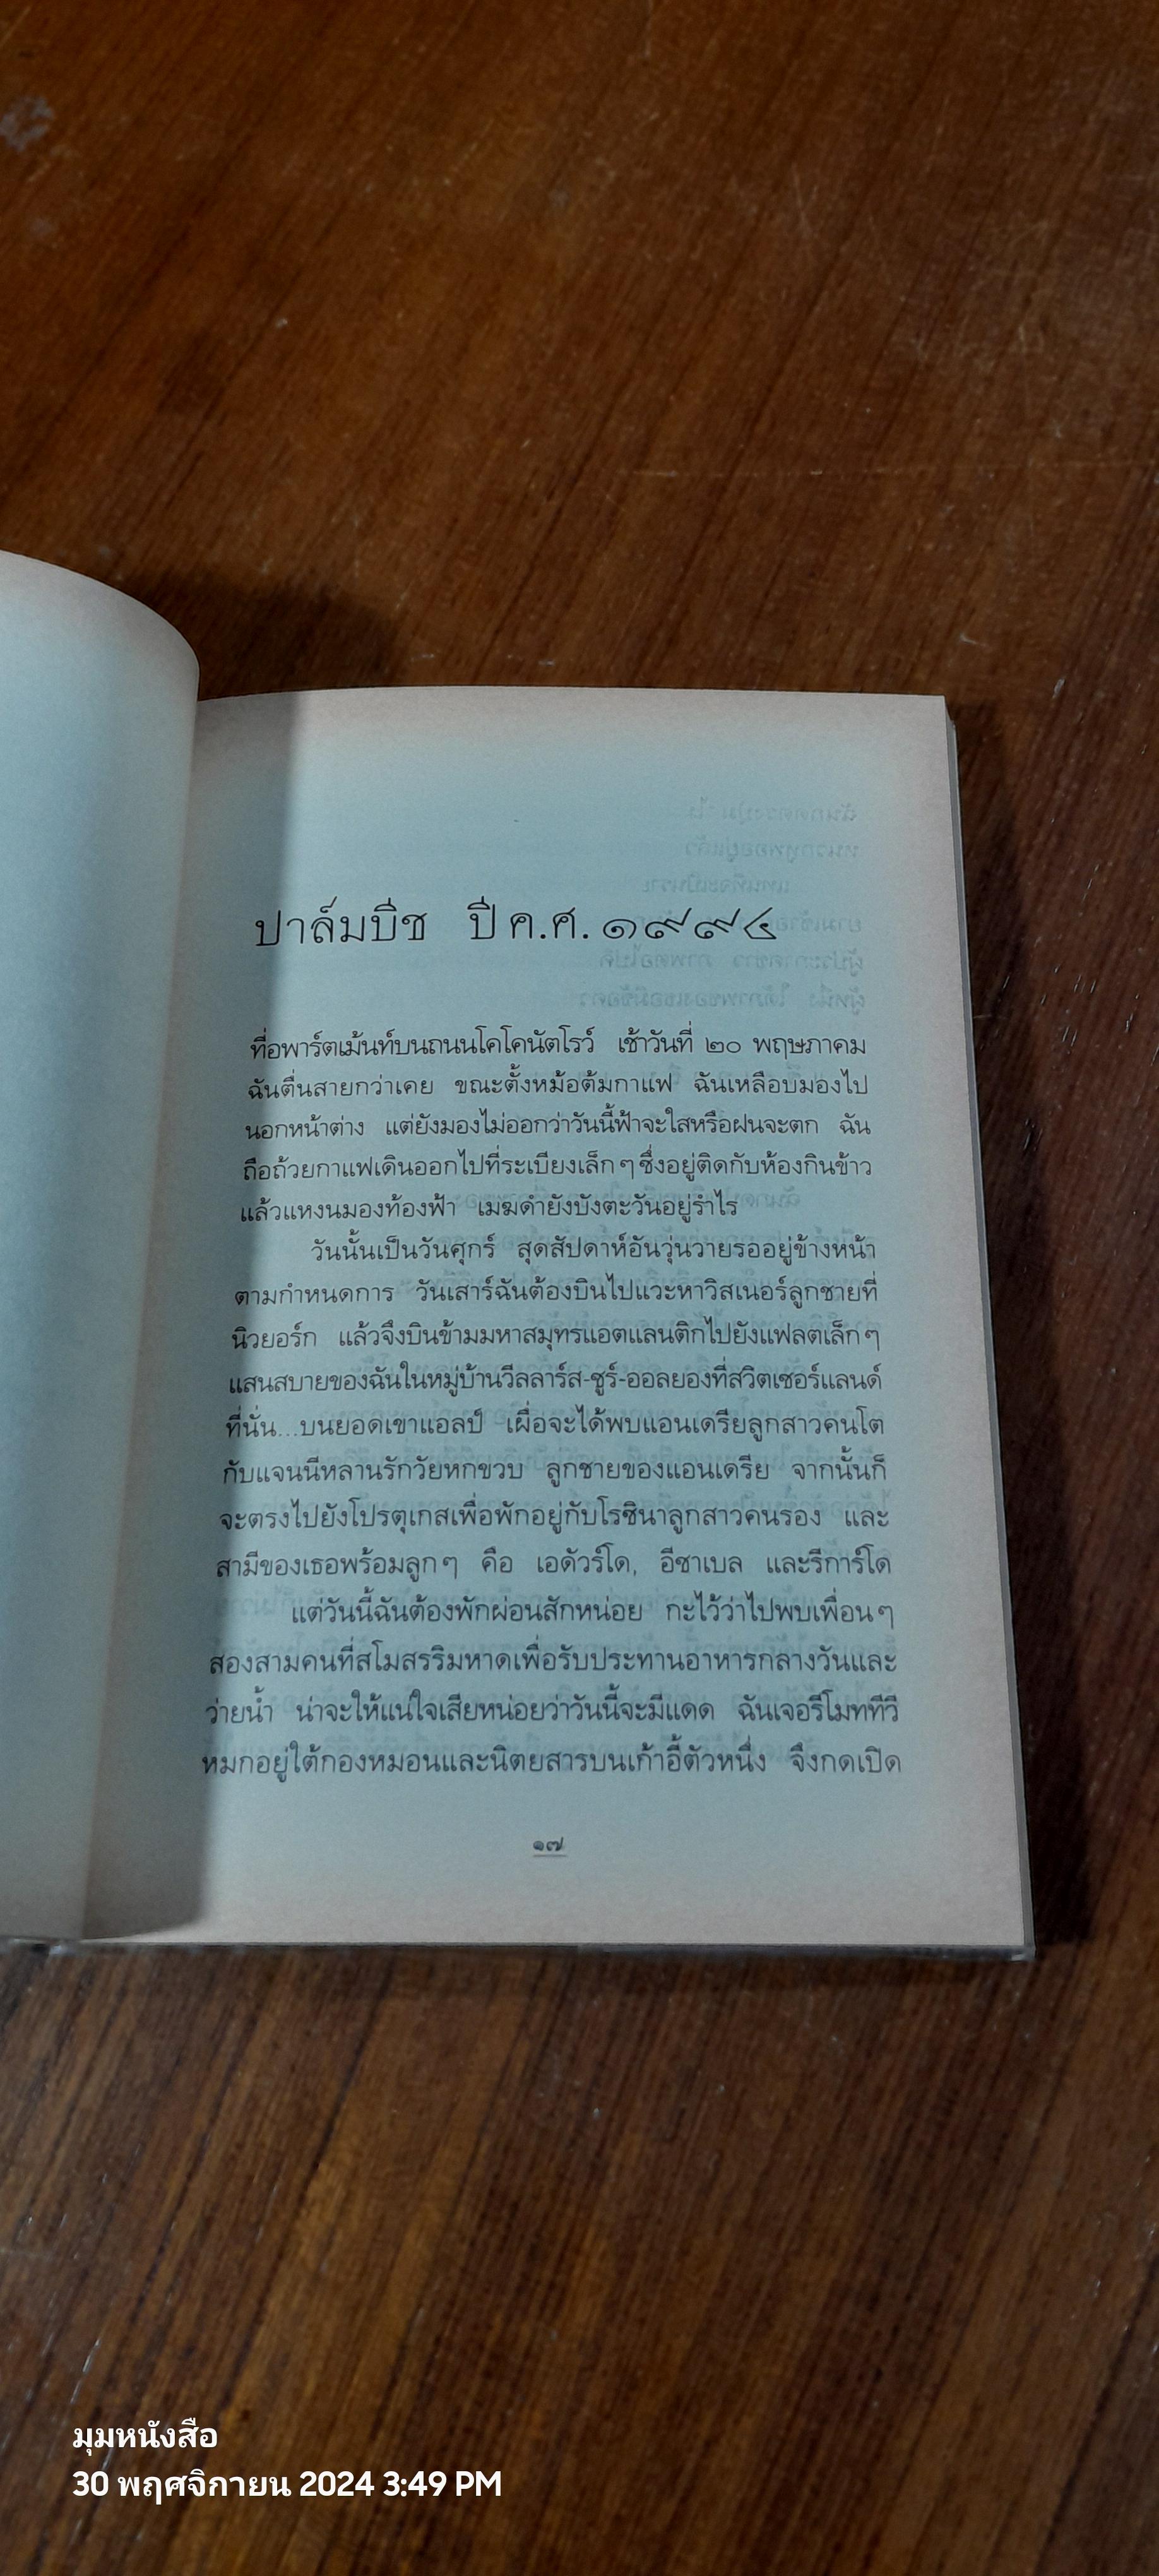 ปาล์มบีช ปี ค.ศ. ๑๙๙๔
ที่อพาร์ตเม้นท์บนถนนโคโคนัตโรว์ เช้าวันที่ ๒๐ พฤษภาคม
ฉันตื่นสายกว่าเคย ขณะตั้งหม้อต้มกาแฟ ฉันเหลือบมองไป
นอกหน้าต่าง แต่ยังมองไม่ออกว่าวันนี้ฟ้าจะใสหรือฝนจะตก ฉัน
ถือถ้วยกาแฟเดินออกไปที่ระเบียงเล็กๆ ซึ่งอยู่ติดกับห้องกินข้าว
แล้วแหงนมองท้องฟ้า เมฆดำยังบังตะวันอยู่รำไร
วันนั้นเป็นวันศุกร์ สุดสัปดาห์อันวุ่นวายรออยู่ข้างหน้า
ตามกำหนดการ วันเสาร์ฉันต้องบินไปแวะหาวิสเนอร์ลูกชายที่
นิวยอร์ก แล้วจึงบินข้ามมหาสมุทรแอตแลนติกไปยังแฟลตเล็กๆ
แสนสบายของฉันในหมู่บ้านวีลลาร์ส-ซูร์-ออลยองที่สวิตเซอร์แลนด์
ที่นั่น...บนยอดเขาแอลป์ เผื่อจะได้พบแอนเดรียลูกสาวคนโต
กับแจนนีหลานรักวัยหกขวบ ลูกชายของแอนเดรีย จากนั้นก็
จะตรงไปยังโปรตุเกสเพื่อพักอยู่กับโรซินาลูกสาวคนรอง และ
สามีของเธอพร้อมลูกๆ คือ เอดัวร์โด, อีซาเบล และรีการ์โด
แต่วันนี้ฉันต้องพักผ่อนสักหน่อย กะไว้ว่าไปพบเพื่อนๆ
สองสามคนที่สโมสรริมหาดเพื่อรับประทานอาหารกลางวันและ
ว่ายน้ำ น่าจะให้แน่ใจเสียหน่อยว่าวันนี้จะมีแดด ฉันเจอรีโมททีวี
หมกอยู่ใต้กองหมอนและนิตยสารบนเก้าอี้ตัวหนึ่ง จึงกดเปิด
๑๗
มุมหนังสือ
30 พฤศจิกายน 2024 3:49 PM